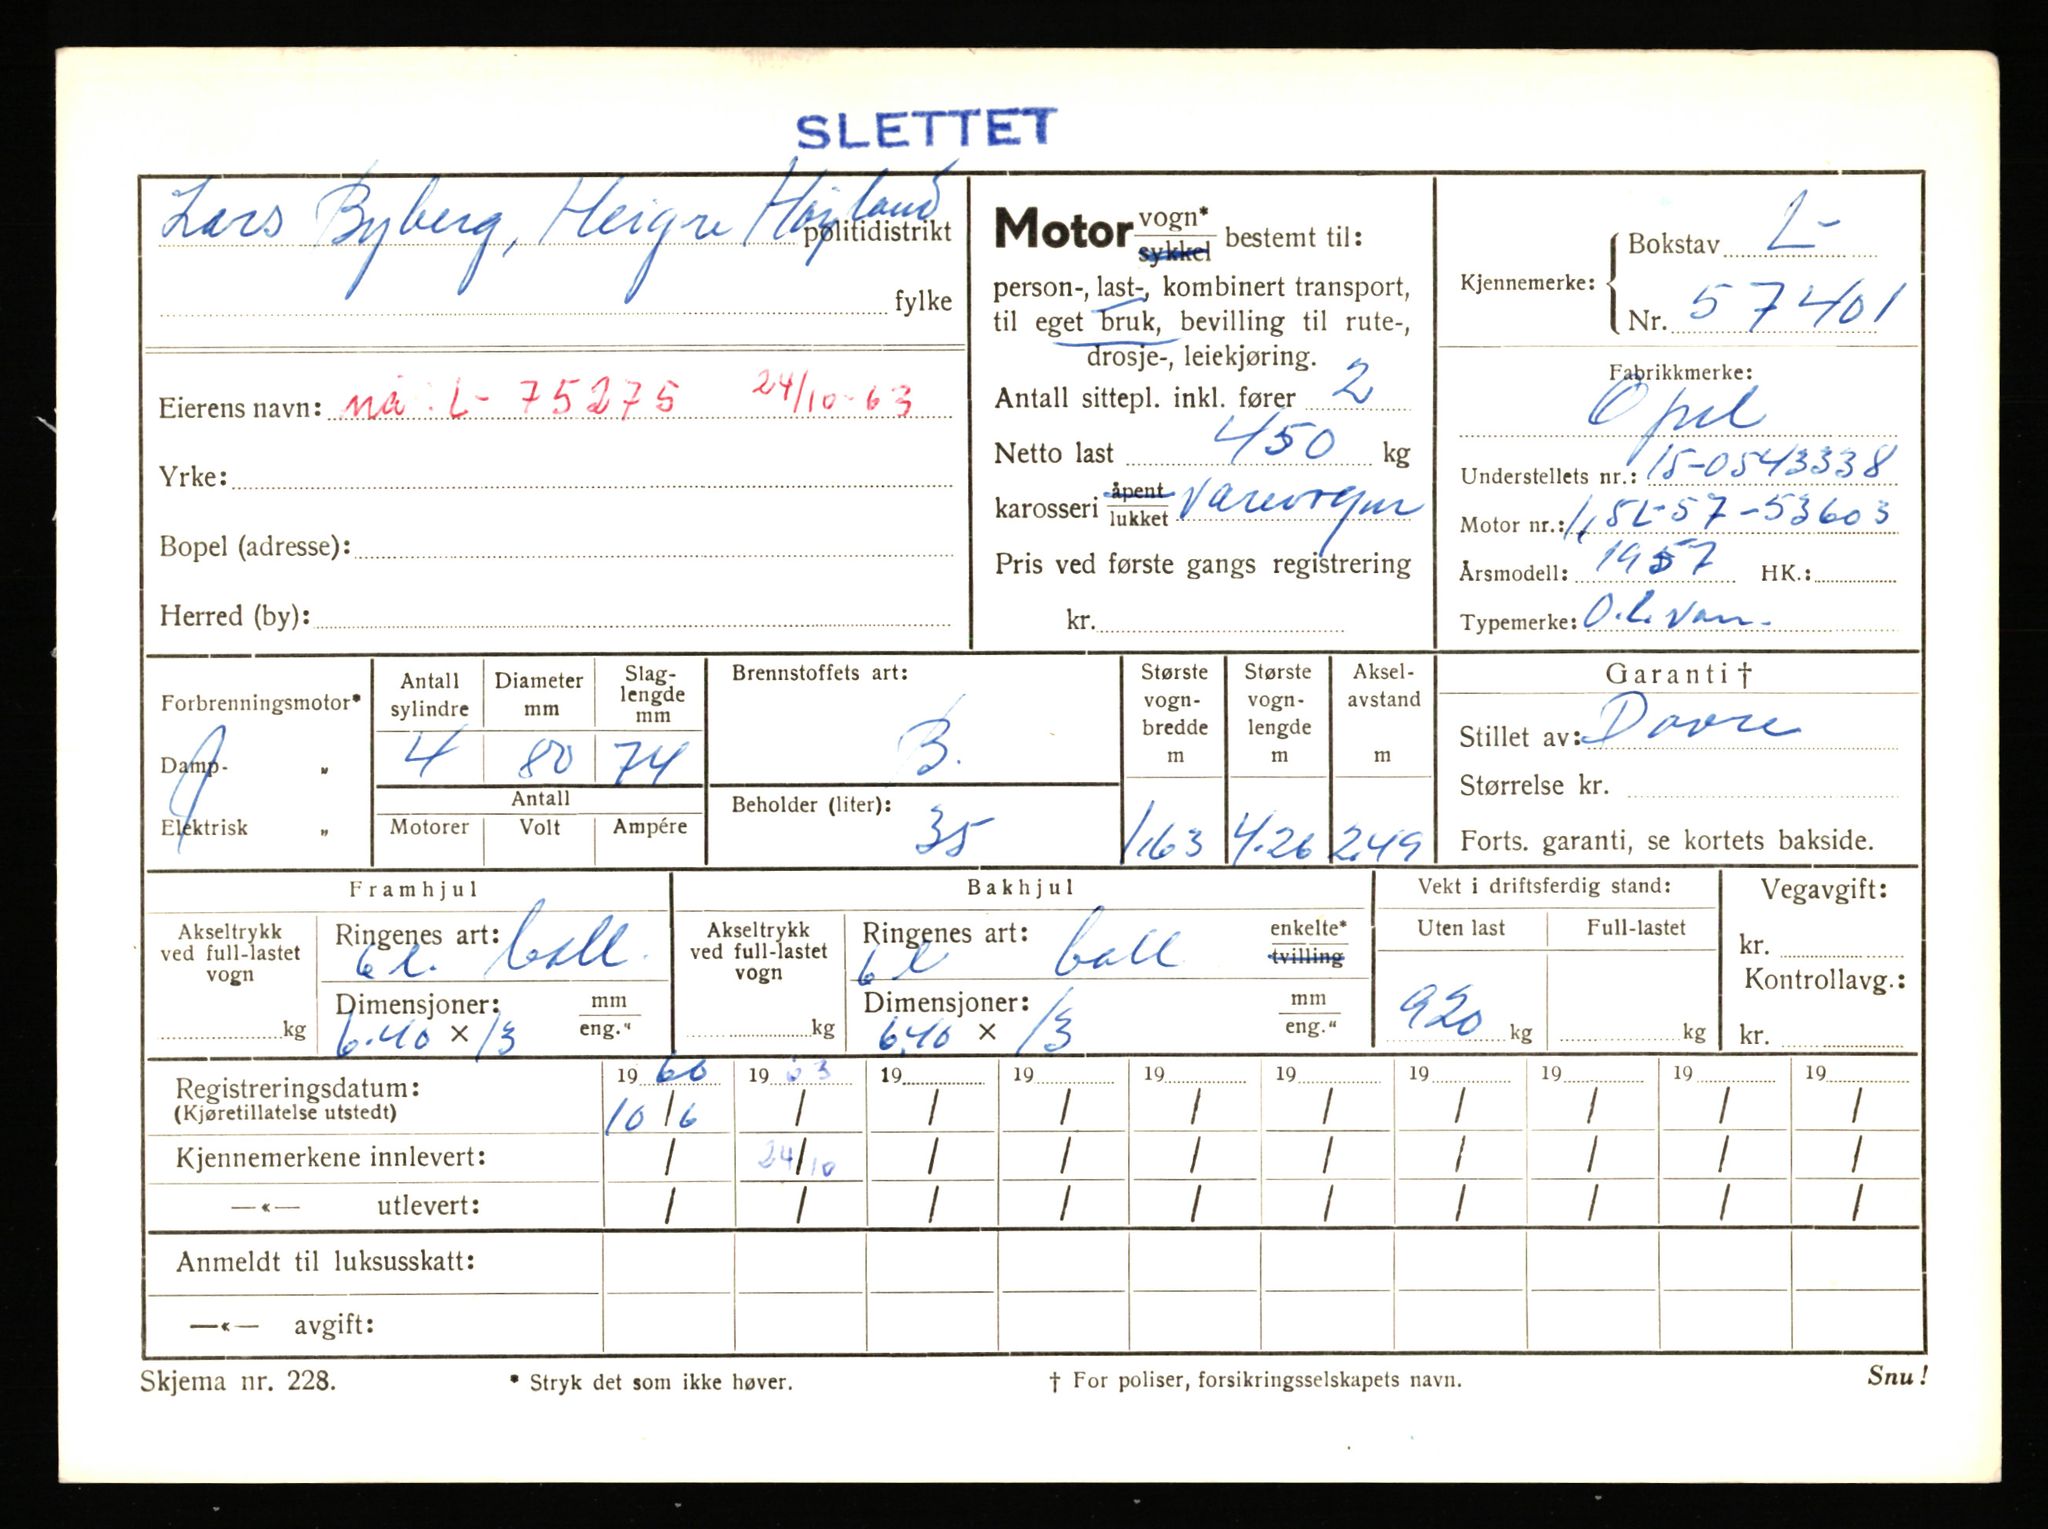 SLETTET
Lars Byberg, Heigre Høyland politidistrikt
fylke
Eierens navn: nå: L- 75275 24/10-63
Yrke:
Bopel (adresse):
Herred (by):
Motor vogn* sykkel bestemt til:
person-, last-, kombinert transport,
til eget bruk, bevilling til rute-,
drosje-, leiekjøring.
Antall sittepl. inkl. fører 2
Netto last 450 kg
karosseri åpent lukket Varevogn
Pris ved første gangs registrering
kr.
Kjennemerke: Bokstav L-
Nr. 57401
Fabrikkmerke:
Opel
Understellets nr.: 15-0543338
Motor nr.: 1,5L-57-53603
Årsmodell: 1957 HK.:
Typemerke: O.L. Van.
Forbrenningsmotor*
Damp- „
Elektrisk „
Antall sylindre Diameter mm Slag-lengde mm
4 80 74
Antall
Motorer Volt Ampére
Brennstoffets art:
B.
Beholder (liter):
35
Største vogn-bredde m Største vogn-lengde m Aksel-avstand m
1,63 4.26 2,49
Garanti †
Stillet av: Dovre
Størrelse kr.
Forts. garanti, se kortets bakside.
Framhjul
Akseltrykk ved full-lastet vogn
kg
Ringenes art:
6 l. ball.
Dimensjoner: mm eng."
6.40 × 13
Bakhjul
Akseltrykk ved full-lastet vogn
kg
Ringenes art: enkelte* tvilling
6 l ball
Dimensjoner: mm eng."
6,40 × 13
Vekt i driftsferdig stand:
Uten last Full-lastet
920 kg kg
Vegavgift:
kr.
Kontrollavg.:
kr.
Registreringsdatum: 19 60 19 63 19 19 19 19 19 19 19 19
(Kjøretillatelse utstedt) 10/6 / / / / / / / / /
Kjennemerkene innlevert: / 24/10 / / / / / / / /
—«— utlevert: / / / / / / / / / /
Anmeldt til luksusskatt:
—«— avgift:
Skjema nr. 228. * Stryk det som ikke høver. † For poliser, forsikringsselskapets navn. Snu!